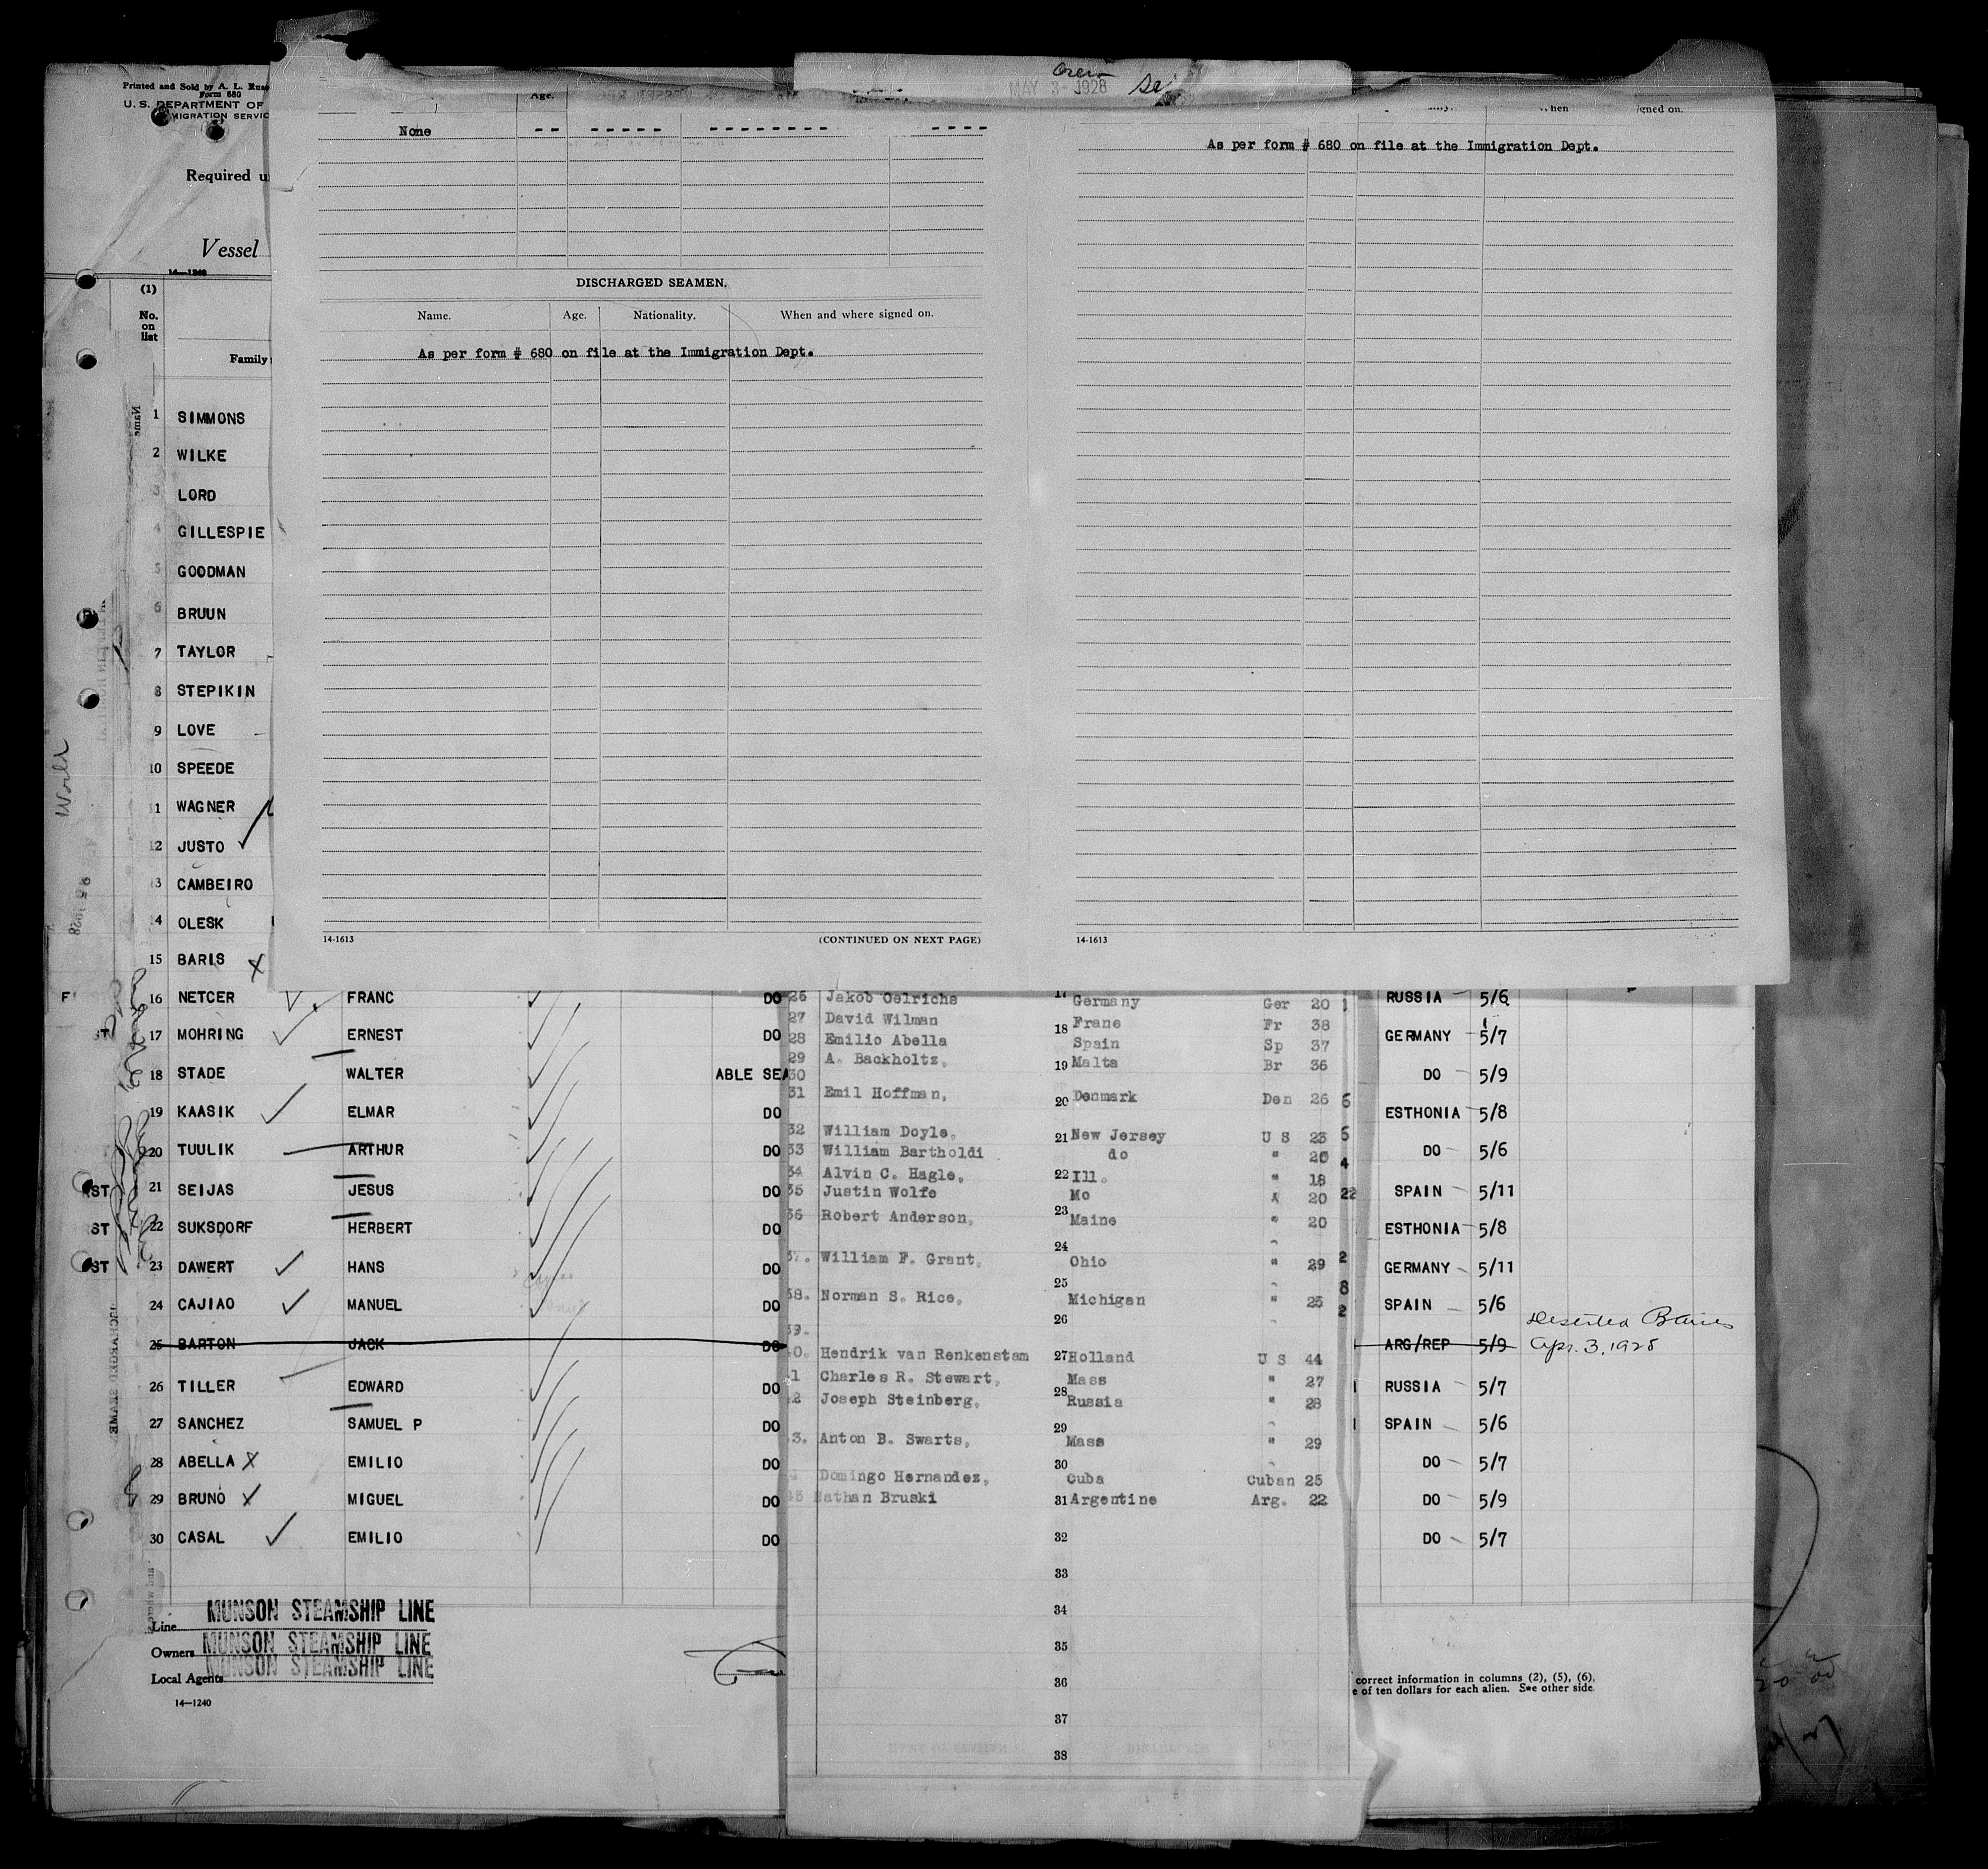 Printed and Sold by A. L.
Form 680
U. S. DEPARTMENT OF
MIGRATION SERVIC
Required
Vessel
(1)
No.
on
list
Family
Name
1 SIMMONS
2 WILKE
3 LORD
4 GILLESPIE
5 GOODMAN
6 BRUUN
7 TAYLOR
8 STEPIKIN
9 LOVE
10 SPEEDE
11 WAGNER
12 JUSTO
13 CAMBEIRO
14 OLESK
15 BARIS
World
MAY 3 - 1928
Age.
None -- ----- -------- ----
DISCHARGED SEAMEN.
Name. Age. Nationality. When and where signed on.
As per form # 680 on file at the Immigration Dept.
14-1613 (CONTINUED ON NEXT PAGE)
when signed on.
As per form # 680 on file at the Immigration Dept.
14-1613
16 NETCER FRANC DO
ST 17 MOHRING ERNEST DO
18 STADE WALTER ABLE SEA
19 KAASIK ELMAR DO
20 TUULIK ARTHUR DO
ST 21 SEIJAS JESUS DO
ST 22 SUKSDORF HERBERT DO
ST 23 DAWERT HANS DO
24 CAJIAO MANUEL DO
25 BARTON JACK DO
26 TILLER EDWARD DO
27 SANCHEZ SAMUEL P DO
28 ABELLA X EMILIO DO
29 BRUNO X MIGUEL DO
30 CASAL EMILIO DO
26 Jakob Oelrichs 17 Germany Ger 20
27 David Wilman Frane Fr 38
18
28 Emilio Abella Spain Sp 37
29 A. Backholtz, 19 Malta Br 36
30
31 Emil Hoffman, 20 Denmark Den 26
32 William Doyle, 21 New Jersey U S 23
33 William Bartholdi do " 20
34 Alvin C. Hagle, 22 Ill. " 18
35 Justin Wolfe Mo " 20
23
36 Robert Anderson, Maine " 20
24
37. William F. Grant, Ohio " 29
25
38. Norman S. Rice, Michigan " 25
26
39.
40. Hendrik van Renkenstam 27 Holland U S 44
41 Charles R. Stewart, Mass " 27
28
42 Joseph Steinberg, Russia " 28
29
43. Anton B. Swarts, Mass " 29
30
Domingo Hernandez, Cuba Cuban 25
45 Nathan Bruski 31 Argentine Arg. 22
32
33
34
35
36
37
38
RUSSIA 5/6
GERMANY 5/7
DO 5/9
ESTHONIA 5/8
DO 5/6
SPAIN 5/11
ESTHONIA 5/8
GERMANY 5/11
SPAIN 5/6
Deserted B Aires
ARG/REP 5/9 Apr. 3. 1928
RUSSIA 5/7
SPAIN 5/6
DO 5/7
DO 5/9
DO 5/7
Line MUNSON STEAMSHIP LINE
Owners MUNSON STEAMSHIP LINE
Local Agents MUNSON STEAMSHIP LINE
14-1240
correct information in columns (2), (5), (6),
e of ten dollars for each alien. See other side